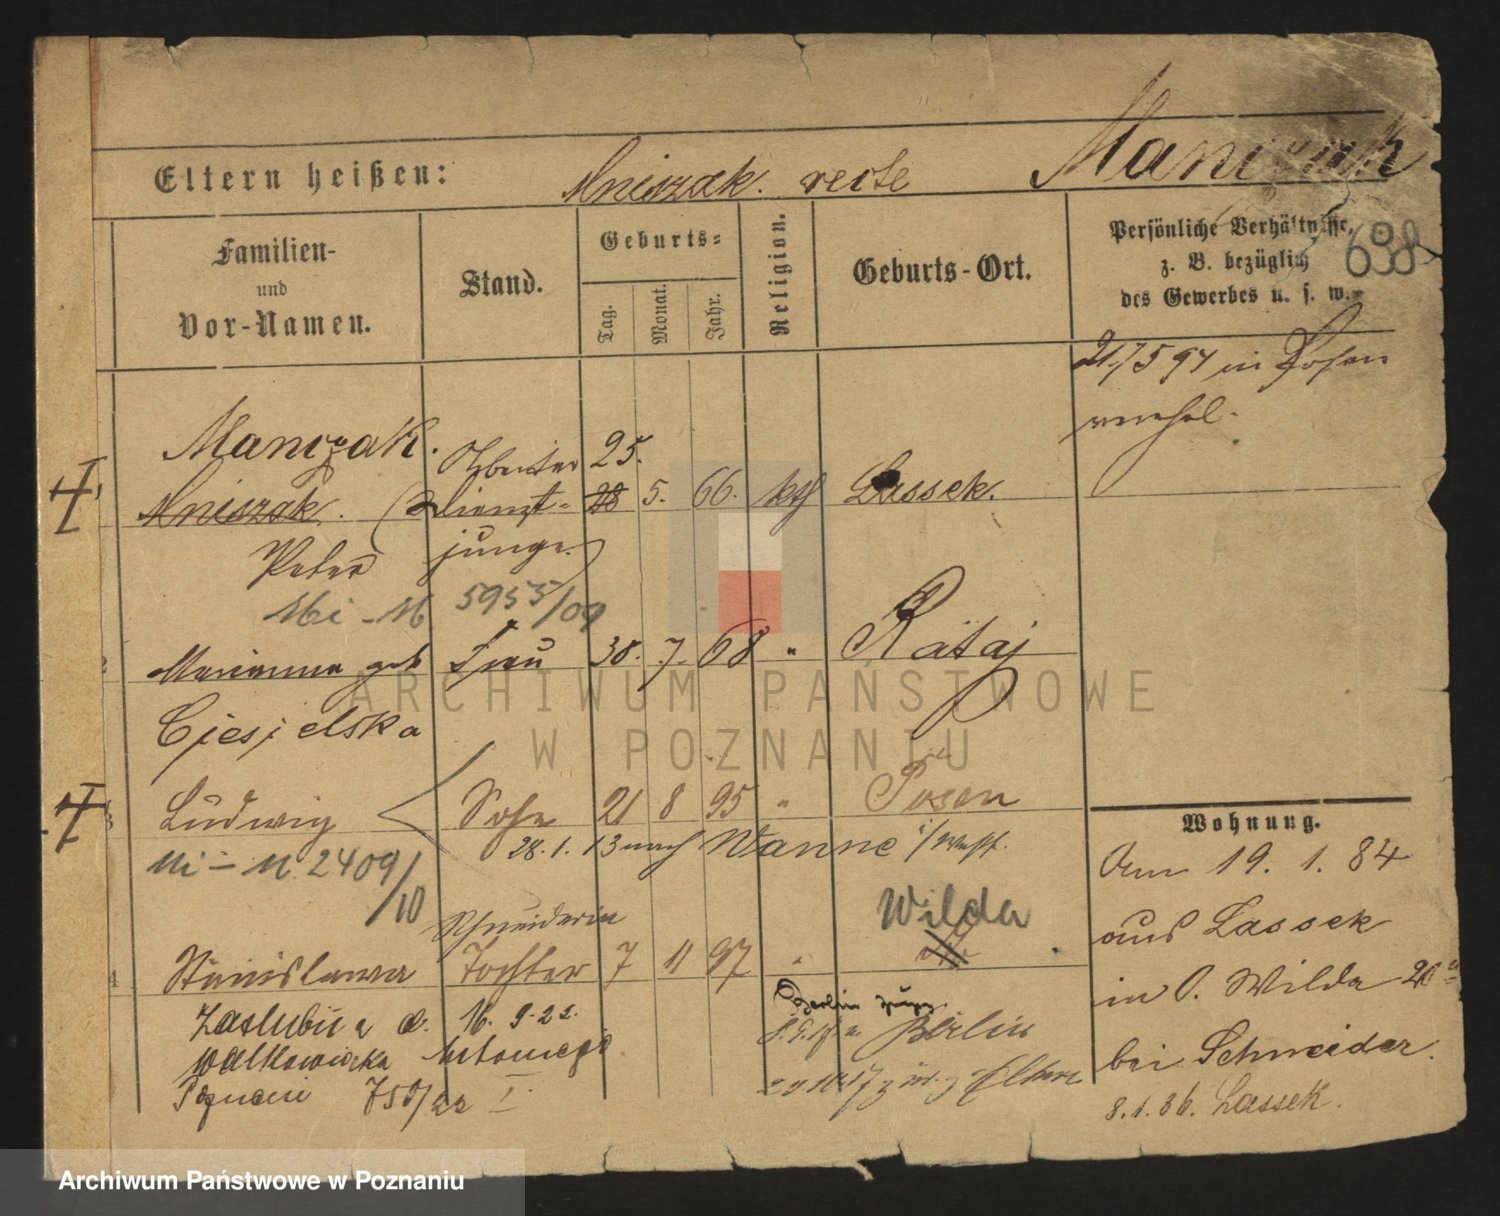 Eltern heißen: Mniszak. recte Manczak
Familien-
und
Vor-Namen.
Stand.
Geburts-
Tag.
Monat.
Jahr.
Religion.
Geburts-Ort.
Persönliche Verhältnisse,
z. B. bezüglich
des Gewerbes u. s. w.
638
21/5 94 in Posen
verehel.
Manczak. Arbeiter 25.
1 Mniszak. (Dienst- 28 5. 66. kth Lassek.
Peter junge.)
Mi - M 5955/09
2 Marianna geb Frau 30. 7. 68 " Rataj
Cjesjelska
3 Ludwig Sohn 21 8 95 " Posen
28.1.13 nach Wanne i/Westf.
Mi - M 2409/10
Schneiderin
Wilda
4 Stanislawa Tochter 7 11 97 "
Zaślubiła d. 16. 9. 22.
Berlin
Berlin
Walkowiaka Antoniego
Poznań 750/22 I.
z. Eltern
Wohnung.
Am 19. 1. 84
aus Lassek
in O. Wilda 20
bei Schneider.
8.1.86. Lassek.
ARCHIWUM PAŃSTWOWE
W POZNANIU
Archiwum Państwowe w Poznaniu